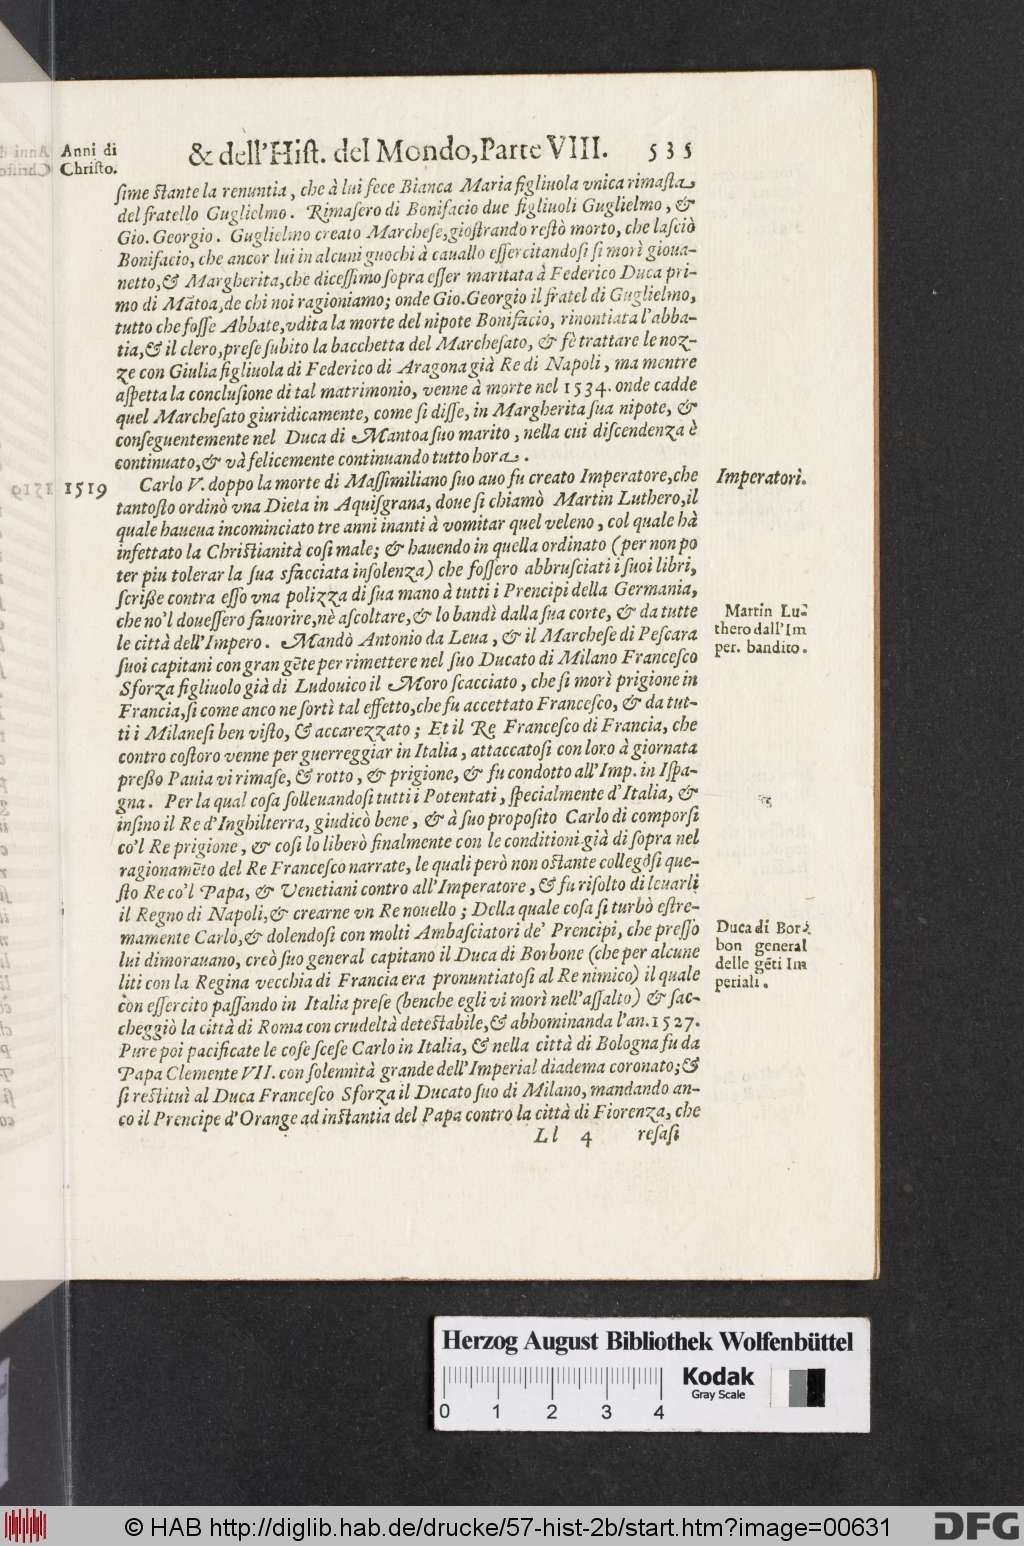 Anni di
Christo.
& dell'Hist. del Mondo, Parte VIII. 535
sime stante la renuntia, che à lui fece Bianca Maria figliuola vnica rimasta
del fratello Guglielmo. Rimasero di Bonifacio due figliuoli Guglielmo, &
Gio. Georgio. Guglielmo creato Marchese, giostrando restò morto, che lasciò
Bonifacio, che ancor lui in alcuni guochi à cauallo essercitandosi si morì gioua-
netto, & Margherita, che dicessimo sopra esser maritata à Federico Duca pri-
mo di Mãtoa, de chi noi ragioniamo; onde Gio. Georgio il fratel di Guglielmo,
tutto che fosse Abbate, vdita la morte del nipote Bonifacio, rinontiata l'abba-
tia, & il clero, prese subito la bacchetta del Marchesato, & fè trattare le noz-
ze con Giulia figliuola di Federico di Aragona già Re di Napoli, ma mentre
aspetta la conclusione di tal matrimonio, venne à morte nel 1534. onde cadde
quel Marchesato giuridicamente, come si disse, in Margherita sua nipote, &
conseguentemente nel Duca di Mantoa suo marito, nella cui discendenza è
continuato, & và felicemente continuando tutto hora.
1519 Carlo V. doppo la morte di Massimiliano suo auo fu creato Imperatore, che
Imperatori.
tantosto ordinò vna Dieta in Aquisgrana, doue si chiamò Martin Luthero, il
quale haueua incominciato tre anni inanti à vomitar quel veleno, col quale hà
infettato la Christianità cosi male; & hauendo in quella ordinato (per non po
ter piu tolerar la sua sfacciata insolenza) che fossero abbrusciati i suoi libri,
scriße contra esso vna polizza di sua mano à tutti i Prencipi della Germania,
che no'l douessero fauorire, nè ascoltare, & lo bandì dalla sua corte, & da tutte
le città dell'Impero. Mandò Antonio da Leua, & il Marchese di Pescara
Martin Lu-
thero dall'Im
per. bandito.
suoi capitani con gran gẽte per rimettere nel suo Ducato di Milano Francesco
Sforza figliuolo già di Ludouico il Moro scacciato, che si morì prigione in
Francia, si come anco ne sortì tal effetto, che fu accettato Francesco, & da tut-
ti i Milanesi ben visto, & accarezzato; Et il Re Francesco di Francia, che
contro costoro venne per guerreggiar in Italia, attaccatosi con loro à giornata
preßo Pauia vi rimase, & rotto, & prigione, & fu condotto all'Imp. in Ispa-
gna. Per la qual cosa solleuandosi tutti i Potentati, specialmente d'Italia, &
insino il Re d'Inghilterra, giudicò bene, & à suo proposito Carlo di comporsi
co'l Re prigione, & cosi lo liberò finalmente con le conditioni già di sopra nel
ragionamẽto del Re Francesco narrate, le quali però non ostante collegòsi que-
sto Re co'l Papa, & Venetiani contro all'Imperatore, & fu risolto di leuarli
il Regno di Napoli, & crearne vn Re nouello; Della quale cosa si turbò estre-
mamente Carlo, & dolendosi con molti Ambasciatori de' Prencipi, che presso
lui dimorauano, creò suo general capitano il Duca di Borbone (che per alcune
liti con la Regina vecchia di Francia era pronuntiatosi al Re nimico) il quale
Duca di Bor-
bon general
delle gẽti Im
periali.
còn essercito passando in Italia prese (benche egli vi morì nell'assalto) & sac-
cheggiò la città di Roma con crudeltà detestabile, & abhominanda l'an. 1527.
Pure poi pacificate le cose scese Carlo in Italia, & nella città di Bologna fu da
Papa Clemente VII. con solennità grande dell'Imperial diadema coronato; &
si restituì al Duca Francesco Sforza il Ducato suo di Milano, mandando an-
co il Prencipe d'Orange ad instantia del Papa contro la città di Fiorenza, che
Ll 4 resasi
Herzog August Bibliothek Wolfenbüttel
Kodak
Gray Scale
0 1 2 3 4
© HAB http://diglib.hab.de/drucke/57-hist-2b/start.htm?image=00631
DFG